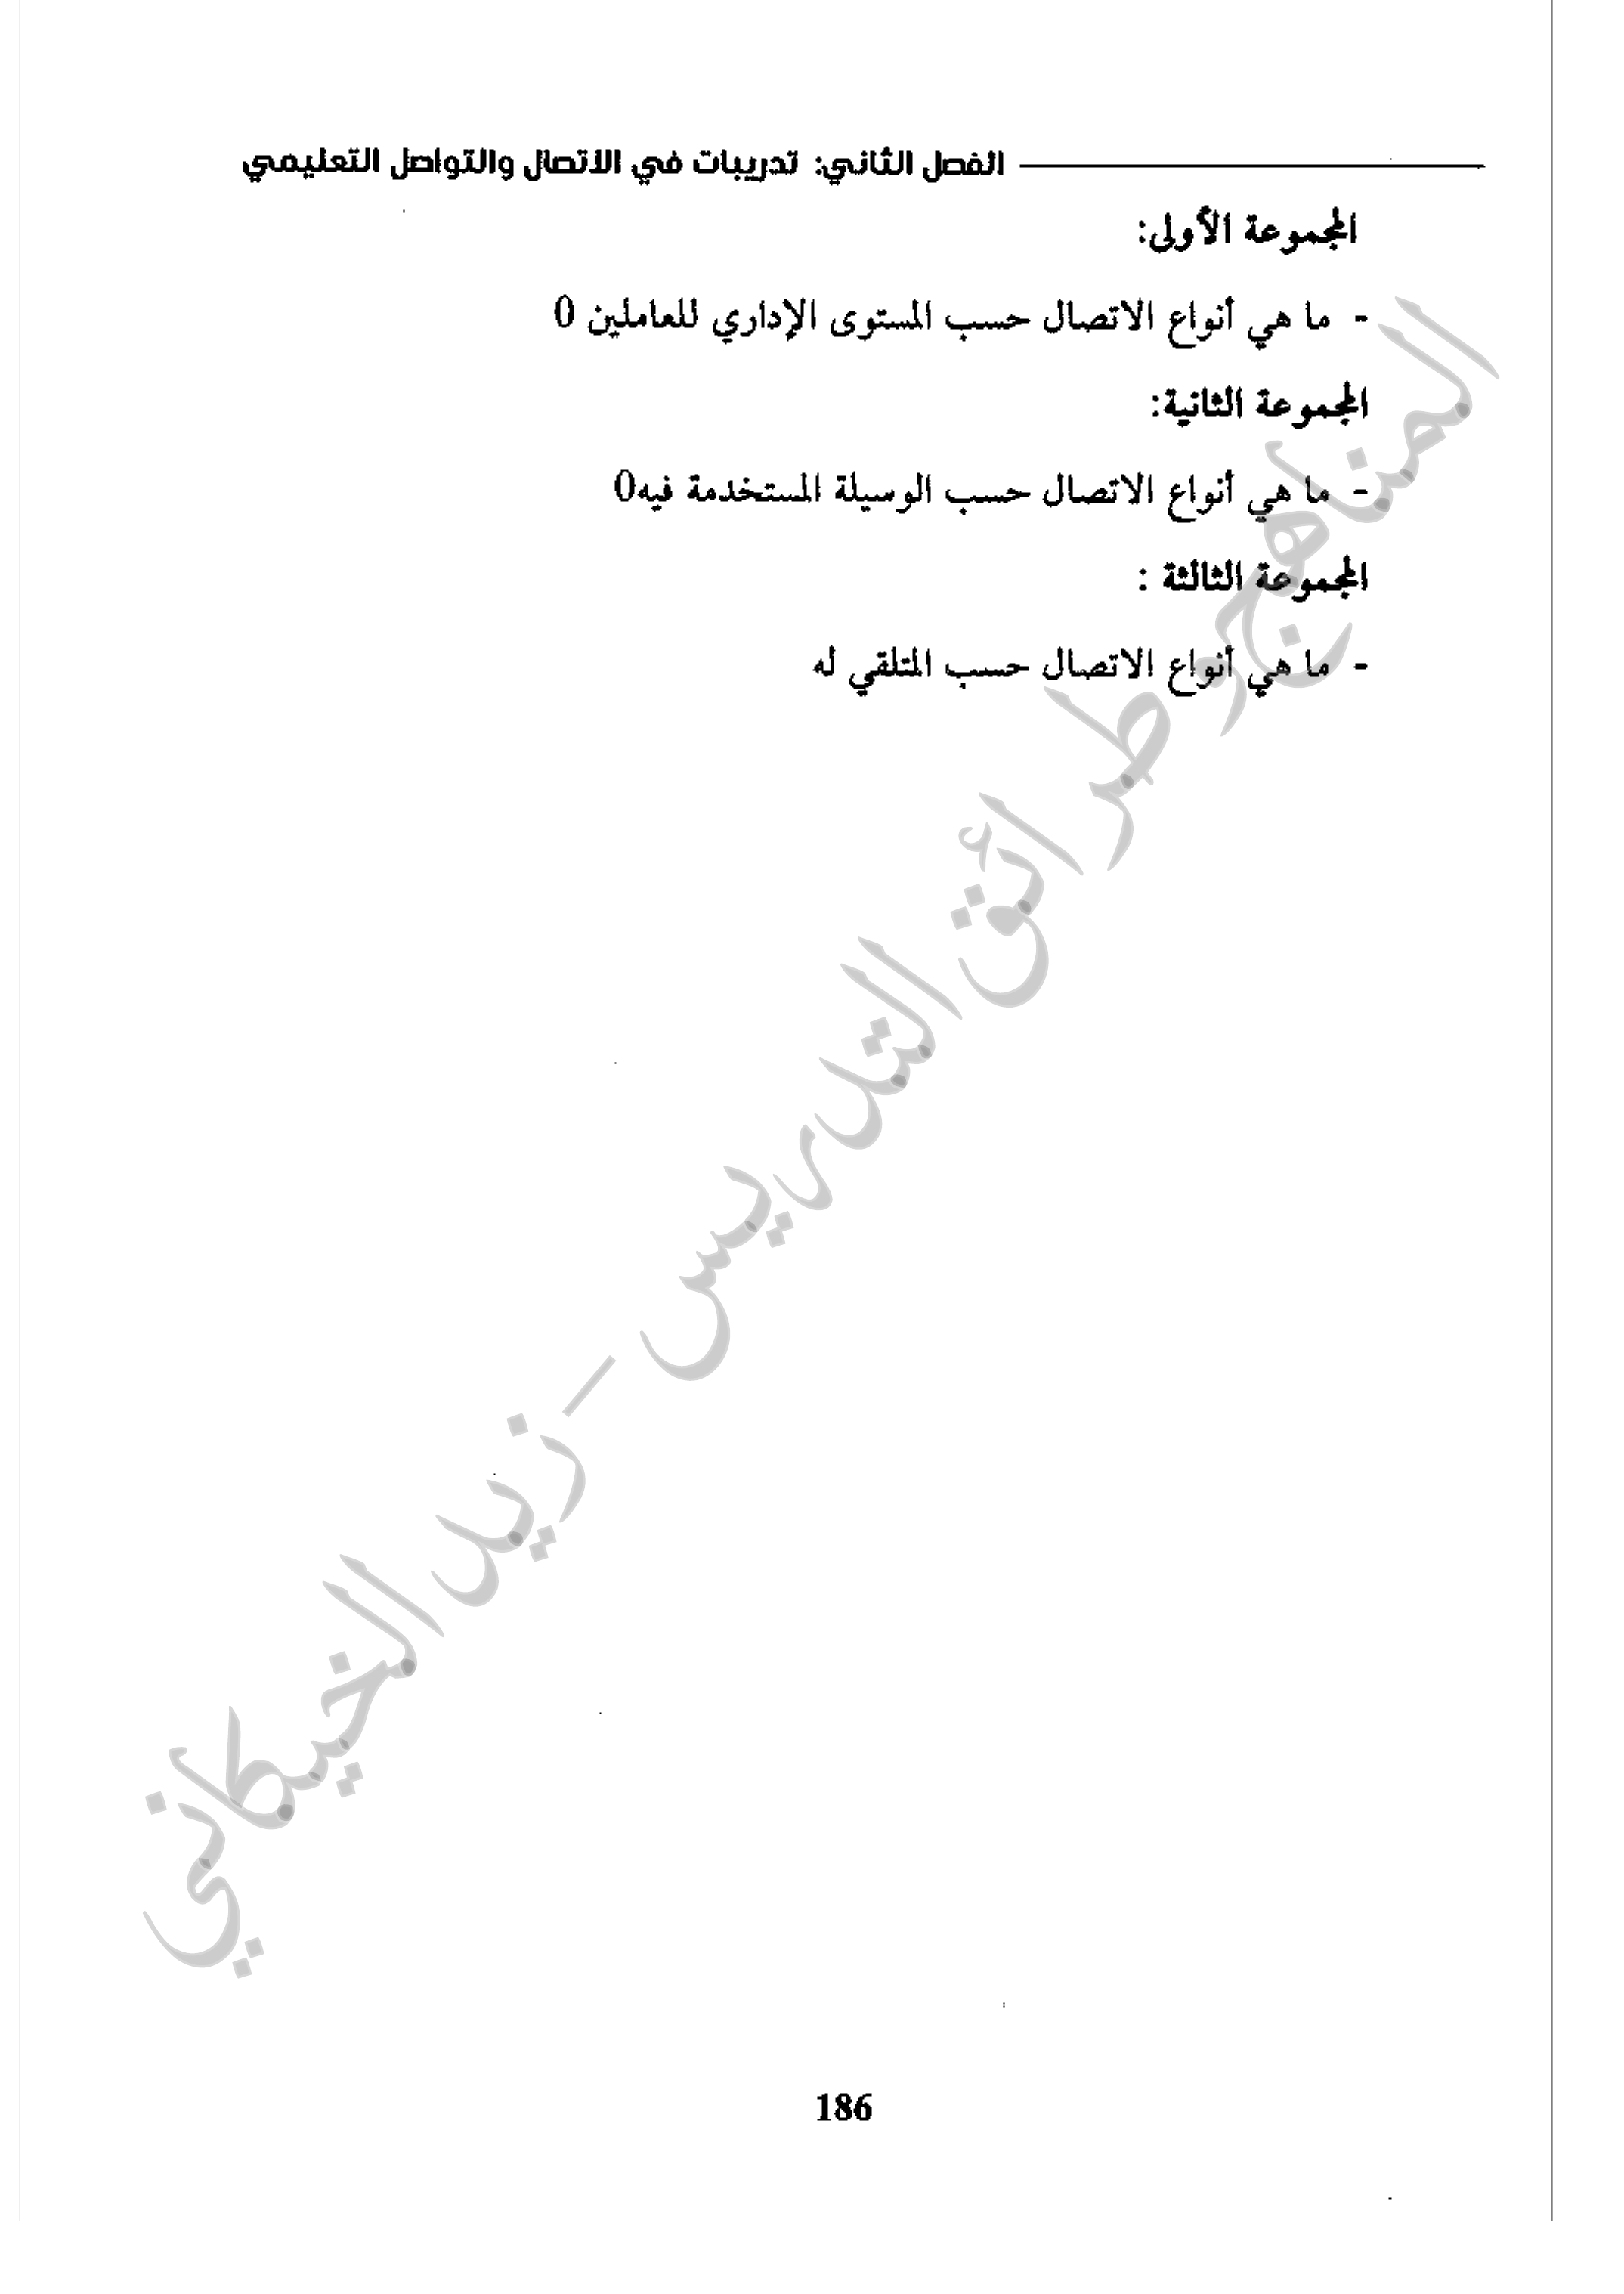 الفصل الثاني: تدريبات في الاتصال والتواصل التعليمي
المجموعة الأولى:
- ما هي أنواع الاتصال حسب المستوى الإداري للعاملين 0
المجموعة الثانية:
- ما هي أنواع الاتصال حسب الوسيلة المستخدمة فيه0
المجموعة الثالثة :
- ما هي أنواع الاتصال حسب المتلقي له
المناهج وطرائق التدريس - زيد الخيكاني
186